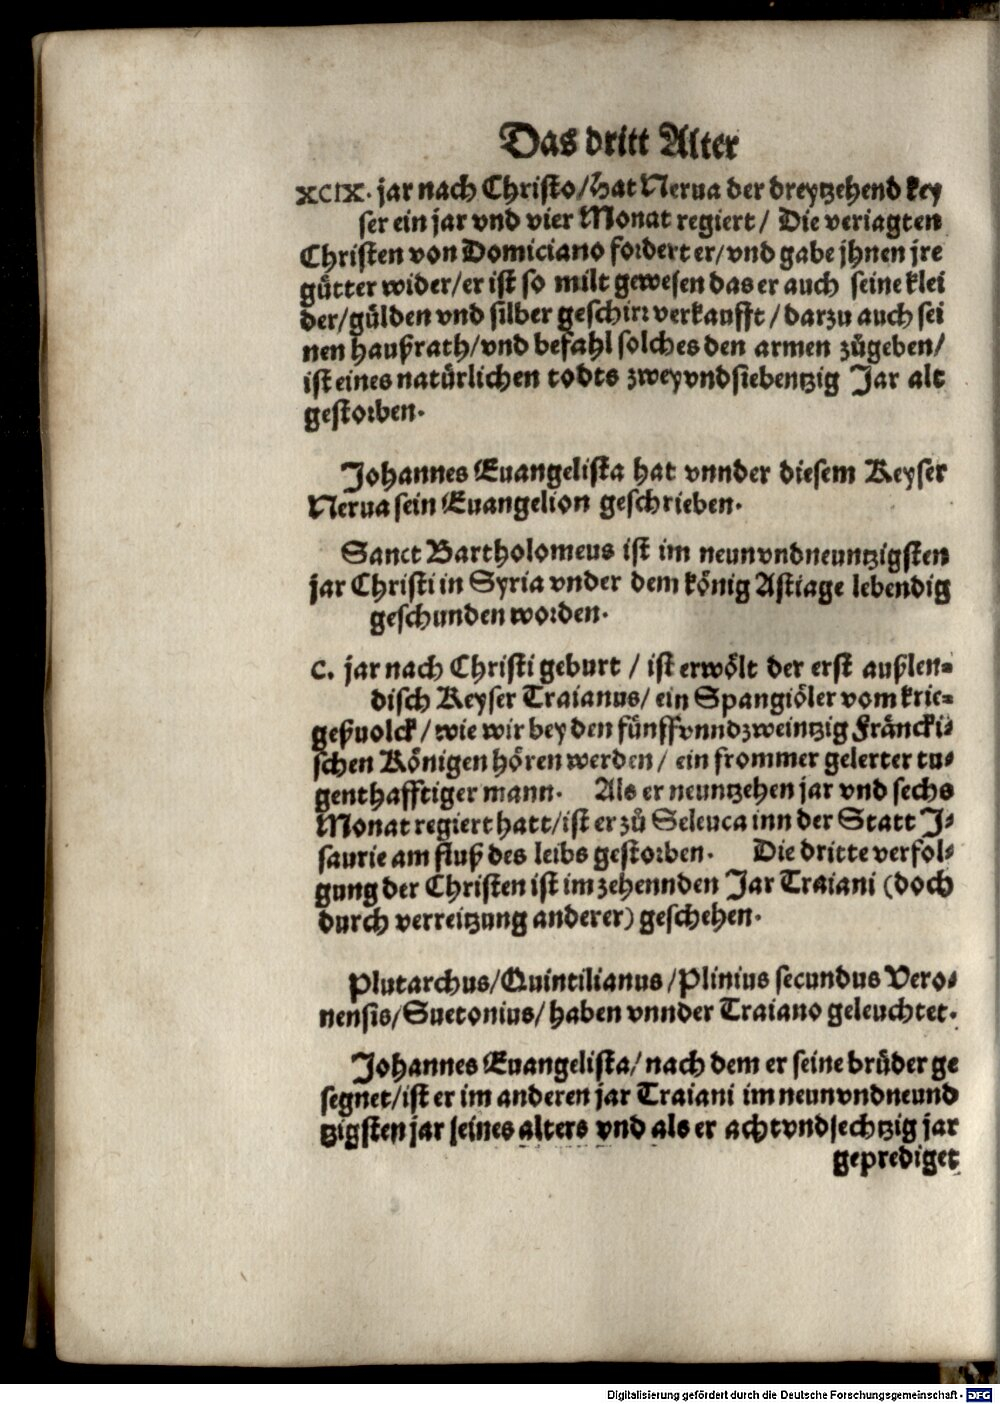 Das dritt Alter
XCIX. jar nach Christo/Hat Nerua der dreytzehend key
ser ein jar vnd vier Monat regiert/ Die veriagten
Christen von Domiciano fordert er/vnd gabe jhnen jre
gütter wider/er ist so milt gewesen das er auch seine klei
der/gülden vnd silber geschirr verkaufft/darzu auch sei
nen haußrath/vnd befahl solches den armen zůgeben/
ist eines natürlichen todts zweyvndsiebentzig Jar alt
gestorben.
Johannes Euangelista hat vnnder diesem Keyser
Nerua sein Euangelion geschrieben.
Sanct Bartholomeus ist im neunvndneuntzigsten
jar Christi in Syria vnder dem König Astiage lebendig
geschunden worden.
C. jar nach Christi geburt / ist erwölt der erst außlen-
disch Keyser Traianus/ ein Spangiöler vom krie-
geßuolck/wie wir bey den fünffvnndzweintzig Fräncki-
schen Königen hören werden/ ein frommer gelerter tu-
genthafftiger mann. Als er neuntzehen jar vnd sechs
Monat regiert hatt/ist er zů Seleuca inn der Statt J-
saurie am fluß des leibs gestorben. Die dritte verfol-
gung der Christen ist im zehennden Jar Traiani (doch
durch verreitzung anderer) geschehen.
Plutarchus/Quintilianus/Plinius secundus Vero-
nensis/Suetonius/haben vnnder Traiano geleuchtet.
Johannes Euangelista/nach dem er seine brůder ge
segnet/ist er im anderen jar Traiani im neunvndneund
tzigsten jar seines alters vnd als er achtvndsechtzig jar
geprediget
Digitalisierung gefördert durch die Deutsche Forschungsgemeinschaft - DFG